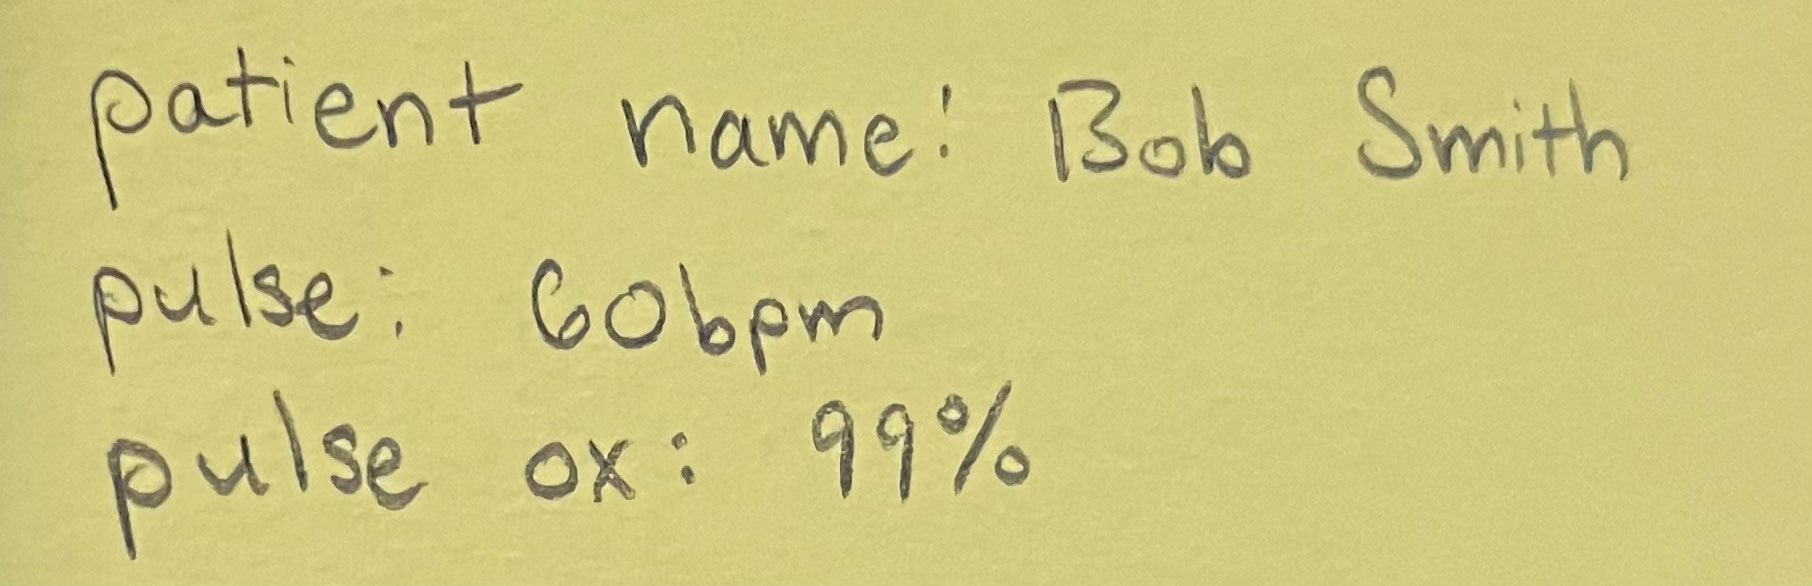 patient name: Bob Smith
pulse: 60bpm
pulse ox: 99%